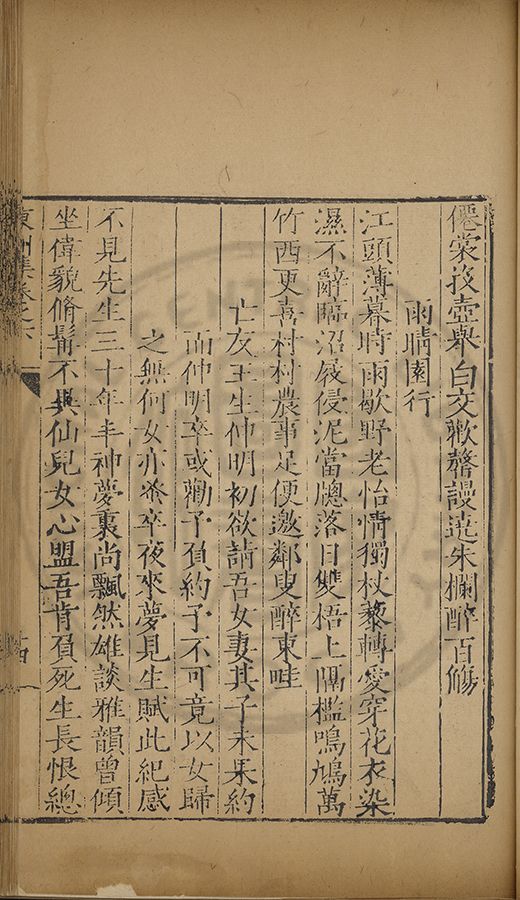 僊裳投壺與白交歡謦謾遶朱欄醉百觴
雨晴園行
江頭薄暮時雨歇野老怡情獨杖藜轉愛穿花衣染
濕不辭臨沼屐侵泥當牕落日雙梧上隔檻鳴鳩萬
竹西更喜村村農事足便邀鄰叟醉東畦
亡友王生仲明初欲請吾女妻其子未果約
而仲明卒或勸予負約予不可竟以女歸
之無何女亦卒夜來夢見生賦此紀感
不見先生三十年丰神夢裏尚飄然雄談雅韻曾傾
坐偉貌脩髯不異仙兒女心盟吾肯負死生長恨總
集卷之六